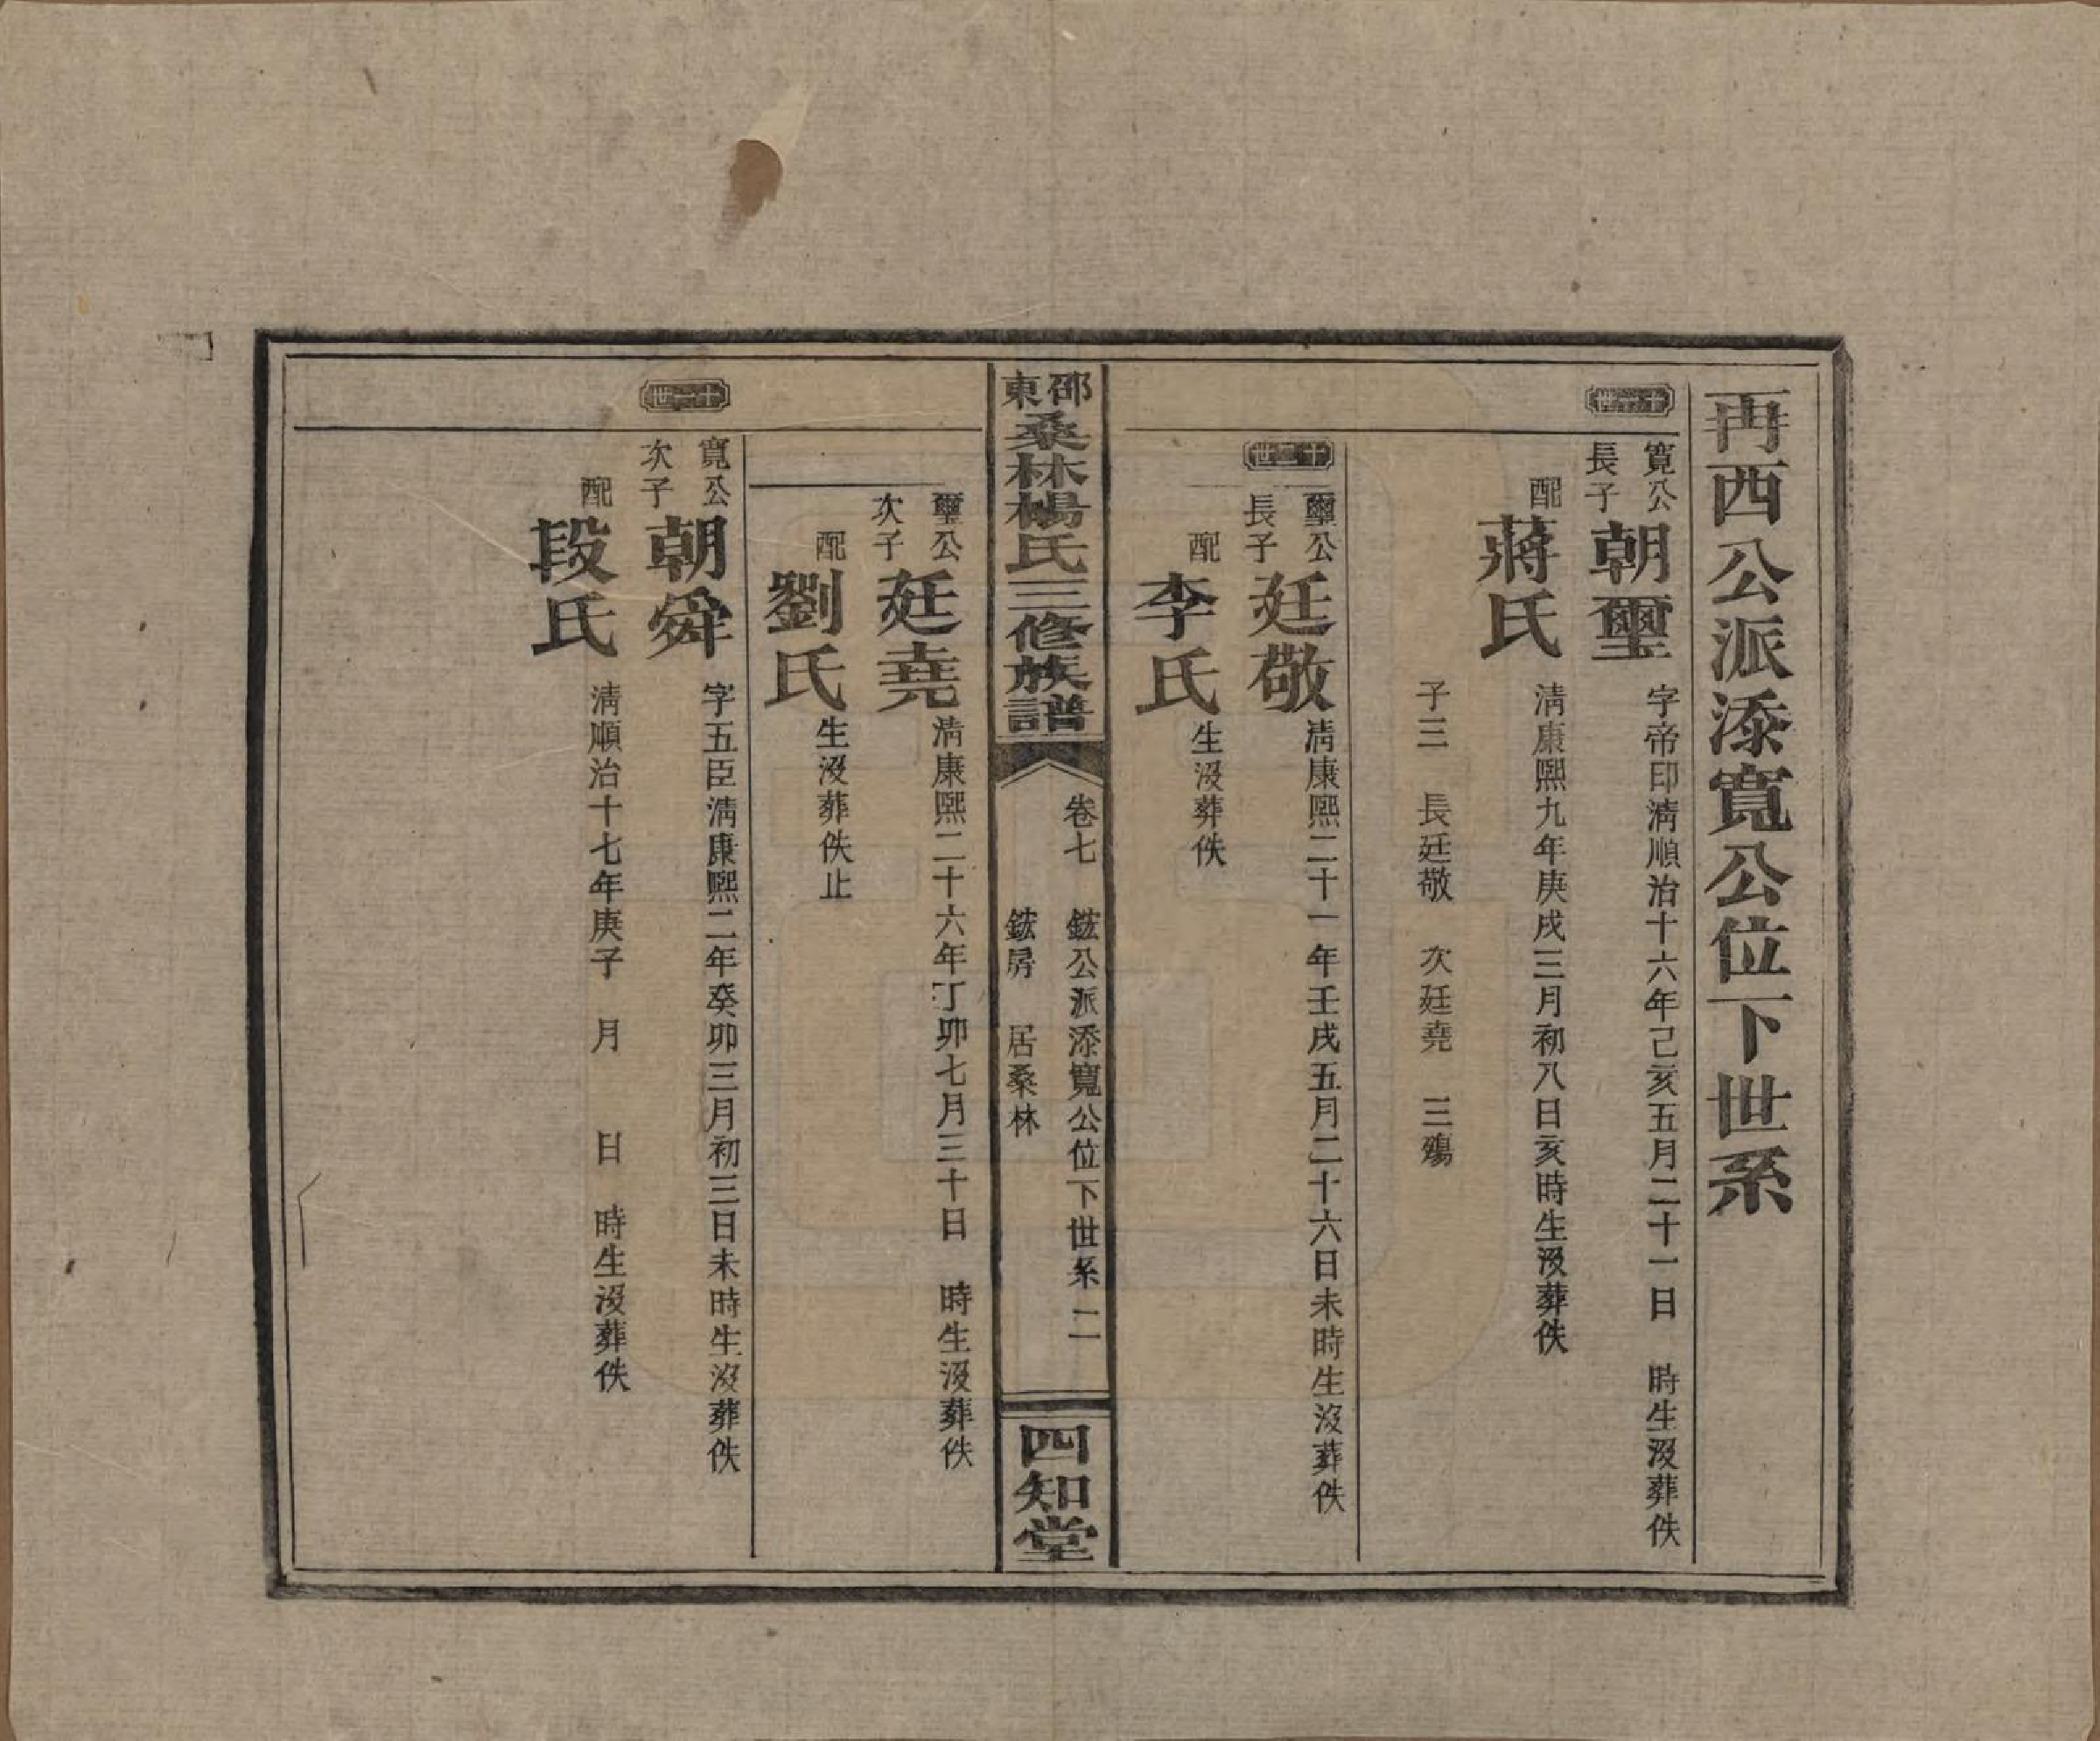 再酉公派添寬公位下世系
十一世
寬公長子 朝璽 字帝印清順治十六年己亥五月二十一日 時生沒葬佚
配 蔣氏 清康熙九年庚戌三月初八日亥時生沒葬佚
子三 長廷敬 次廷堯 三殤
十二世
璽公長子 廷敬 清康熙二十一年壬戌五月二十六日未時生沒葬佚
配 李氏 生沒葬佚
邵東桑林楊氏三修族譜
卷七 鋐公派添寬公位下世系 二
鋐房 居桑林
四知堂
璽公次子 廷堯 清康熙二十六年丁卯七月三十日 時生沒葬佚
配 劉氏 生沒葬佚止
十一世
寬公次子 朝舜 字五臣清康熙二年癸卯三月初三日未時生沒葬佚
配 段氏 清順治十七年庚子 月 日 時生沒葬佚